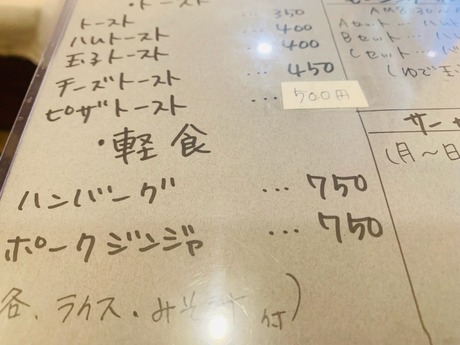 ・トースト
トースト … 350
ハムトースト … 400
玉子トースト … 400
チーズトースト … 450
ピザトースト … 500円
・軽食
ハンバーグ … 750
ポークジンジャ … 750
各、ライス・みそ汁付)
Aセット…
Bセット…
Cセット…
(ゆで玉
サー
(月〜日